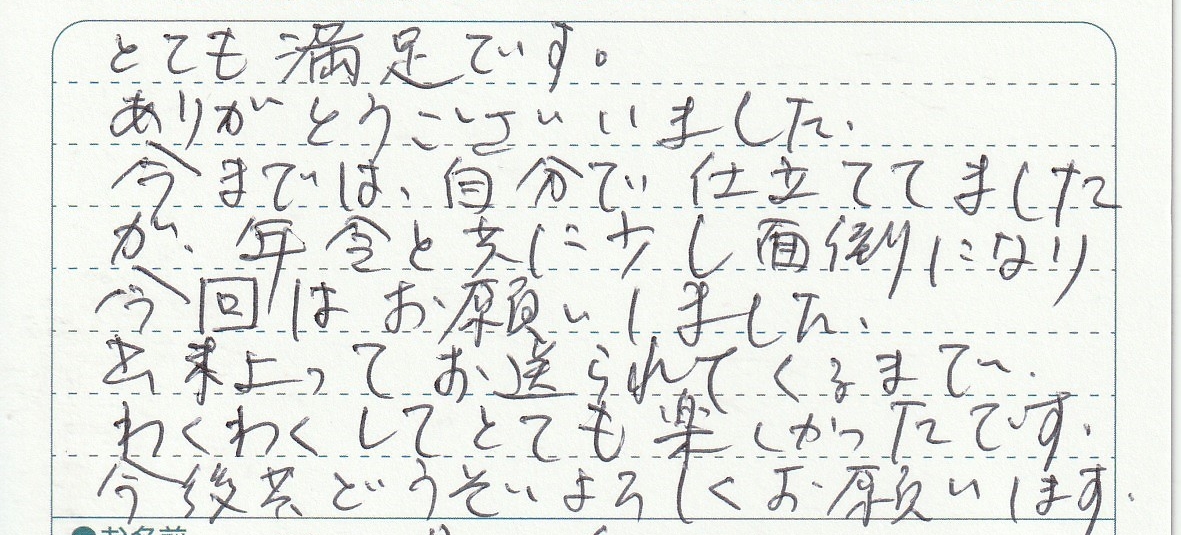 とても満足です。
ありがとうございいました.
今までは、自分で仕立ててました
が、年令と共に少し面倒になり
今回はお願いしました.
出来上ってお送られてくるまで.
わくわくしてとても楽しかったです.
今後共どうぞよろしくお願いします.
●お名前